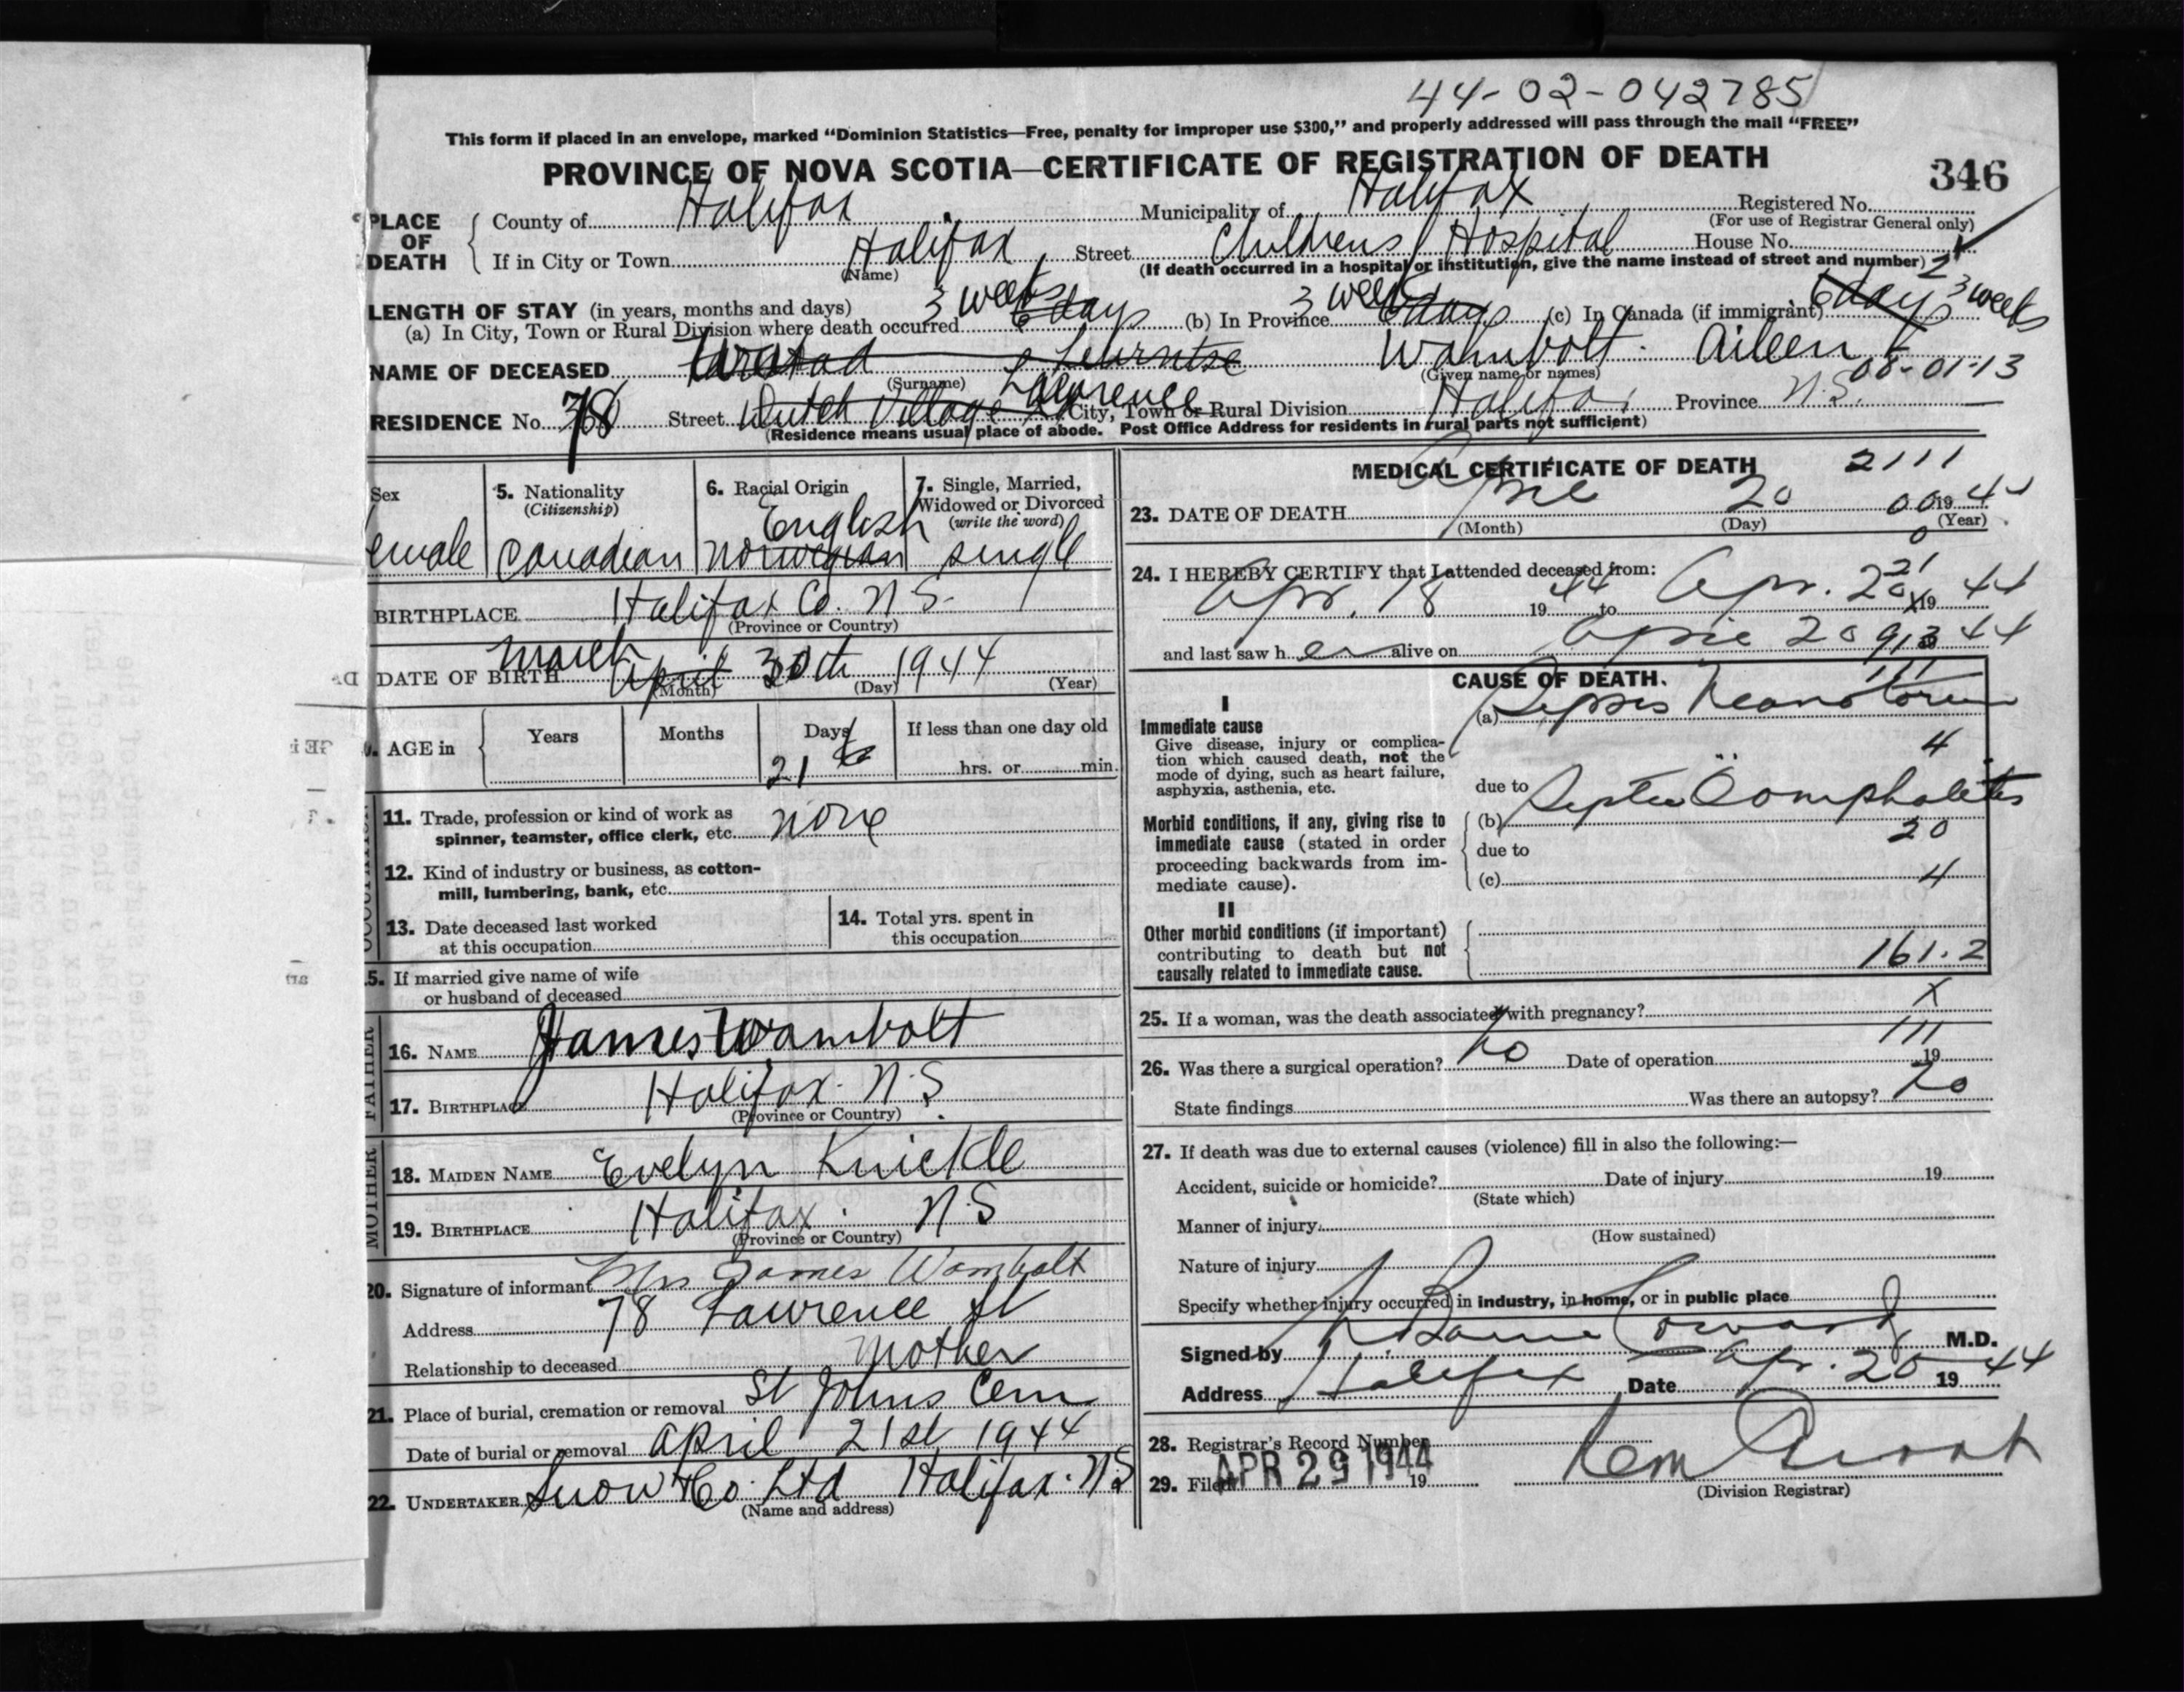 44-02-042785
This form if placed in an envelope, marked “Dominion Statistics—Free, penalty for improper use $300,” and properly addressed will pass through the mail “FREE”
PROVINCE OF NOVA SCOTIA—CERTIFICATE OF REGISTRATION OF DEATH
346
PLACE OF DEATH
County of Halifax Municipality of Halifax Registered No.
(For use of Registrar General only)
If in City or Town Halifax Street Childrens Hospital House No.
(Name) (If death occurred in a hospital or institution, give the name instead of street and number) 2
LENGTH OF STAY (in years, months and days)
(a) In City, Town or Rural Division where death occurred 3 weeks 6 days (b) In Province 3 weeks 6 days (c) In Canada (if immigrant) 6 days 3 weeks
NAME OF DECEASED Wambolt Aileen
(Surname) (Given name or names) 08-01-13
Lawrence
RESIDENCE No. 78 Street Dutch Village Rd City, Town or Rural Division Halifax Province N.S.
(Residence means usual place of abode. Post Office Address for residents in rural parts not sufficient)
Sex 5. Nationality (Citizenship) 6. Racial Origin 7. Single, Married, Widowed or Divorced (write the word)
English
emale Canadian Norwegian single
BIRTHPLACE Halifax Co. N S.
(Province or Country)
March
DATE OF BIRTH April 30th 1944
(Month) (Day) (Year)
AGE in Years Months Days If less than one day old
21 6 hrs. or min.
11. Trade, profession or kind of work as
spinner, teamster, office clerk, etc. none
12. Kind of industry or business, as cotton-
mill, lumbering, bank, etc.
13. Date deceased last worked
at this occupation
14. Total yrs. spent in
this occupation
5. If married give name of wife
or husband of deceased
FATHER
16. NAME James Wambolt
17. BIRTHPLACE Halifax. N.S.
(Province or Country)
MOTHER
18. MAIDEN NAME Evelyn Knickle
19. BIRTHPLACE Halifax. N.S
(Province or Country)
20. Signature of informant Mrs James Wambolt
Address 78 Lawrence St
Relationship to deceased Mother
21. Place of burial, cremation or removal St Johns Cem
Date of burial or removal April 21st 1944
22. UNDERTAKER Snow & Co. Ltd Halifax. N.S
(Name and address)
MEDICAL CERTIFICATE OF DEATH 2111
23. DATE OF DEATH 20 00 1944
(Month) (Day) (Year)
0
24. I HEREBY CERTIFY that I attended deceased from:
21
Apr. 18 1944 to Apr. 20 1944
and last saw her alive on 20 1944
CAUSE OF DEATH.
111
I
Immediate cause
Give disease, injury or complica-
tion which caused death, not the
mode of dying, such as heart failure,
asphyxia, asthenia, etc.
(a) Sepsis Neonatorum
4
due to
Morbid conditions, if any, giving rise to
immediate cause (stated in order
proceeding backwards from im-
mediate cause).
(b) Septic Oomphalitis
20
due to
(c) 4
II
Other morbid conditions (if important)
contributing to death but not
causally related to immediate cause.
161.2
25. If a woman, was the death associated with pregnancy? X
111
26. Was there a surgical operation? no Date of operation 19
State findings Was there an autopsy? 20
27. If death was due to external causes (violence) fill in also the following:—
Accident, suicide or homicide? Date of injury 19
(State which)
Manner of injury
(How sustained)
Nature of injury
Specify whether injury occurred in industry, in home, or in public place
Signed by Coward M.D.
Address Halifax Date Apr. 20 1944
28. Registrar's Record Number
29. Filed APR 29 1944 19
(Division Registrar)